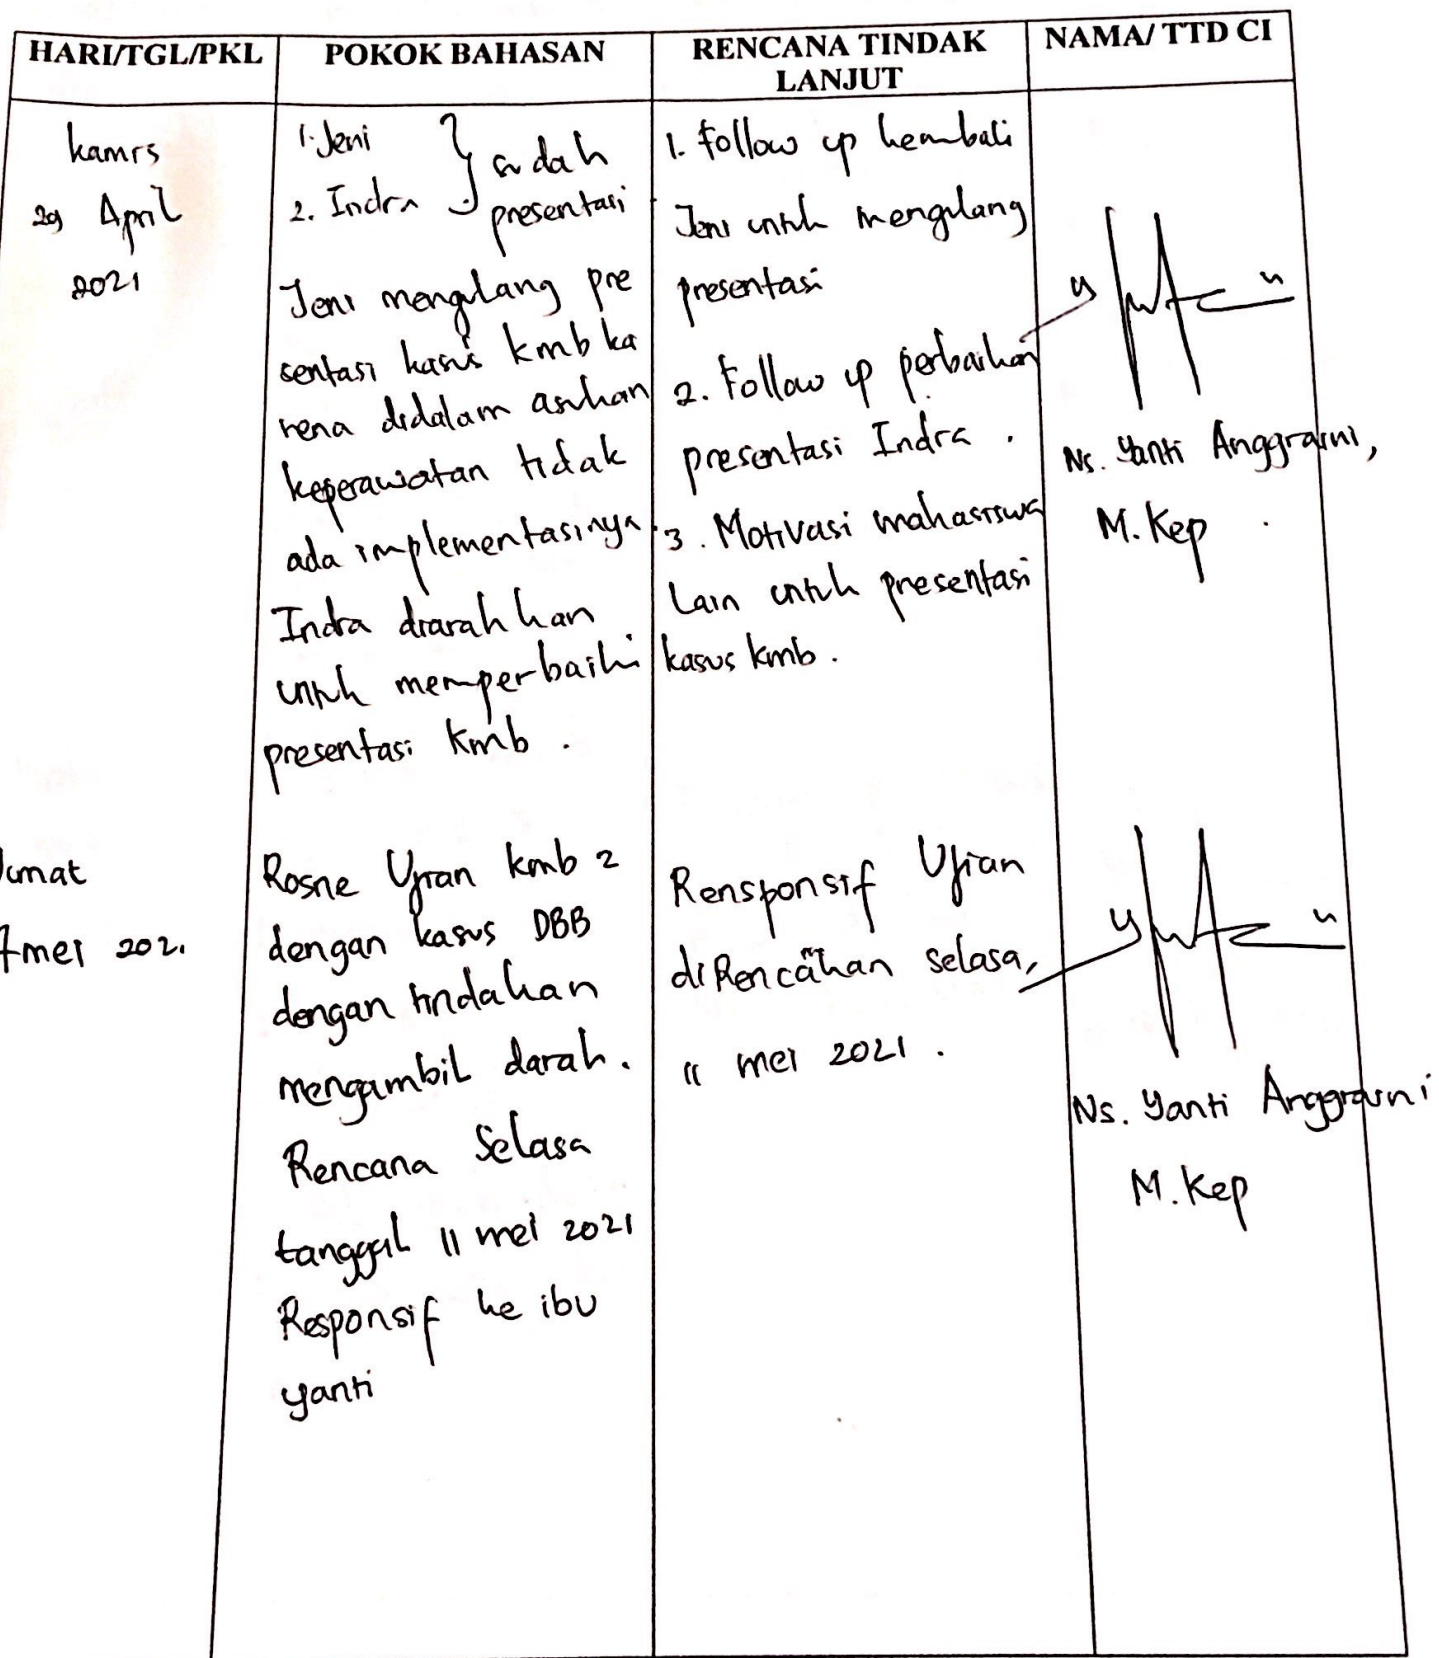 HARI/TGL/PKL
POKOK BAHASAN
RENCANA TINDAK
LANJUT
NAMA/ TTD CI
kamis
29 April
2021
1. Jeni
2. Indra
sudah
presentasi
Jeni mengulang pre
sentasi kasus kmb ka
rena didalam asuhan
keperawatan tidak
ada implementasinya.
Indra diarahkan
untuk memperbaiki
presentasi kmb.
1. Follow up kembali
Jeni untuk mengulang
presentasi
2. Follow up perbaikan
presentasi Indra.
3. Motivasi mahasiswa
Lain untuk presentasi
kasus kmb.
Ns. Yanti Anggraini,
M. Kep
Jumat
7 mei 202
Rosne Ujian kmb 2
dengan kasus DBB
dengan tindakan
mengambil darah.
Rencana Selasa
tanggal 11 mei 2021
Responsif ke ibu
yanti
Rensponsif Ujian
di selasa,
11 mei 2021.
Ns. Yanti Anggraini
M. Kep